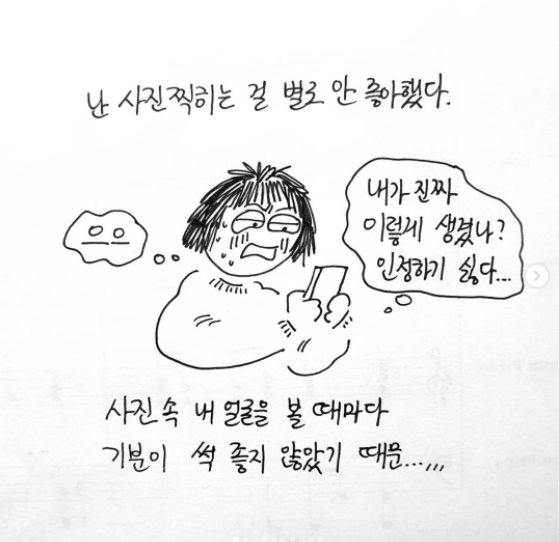 난 사진찍히는 걸 별로 안 좋아했다.
으으
내가 진짜
이렇게 생겼나?
인정하기 싫다...
사진 속 내 얼굴을 볼 때마다
기분이 썩 좋지 않았기 때문...,,,